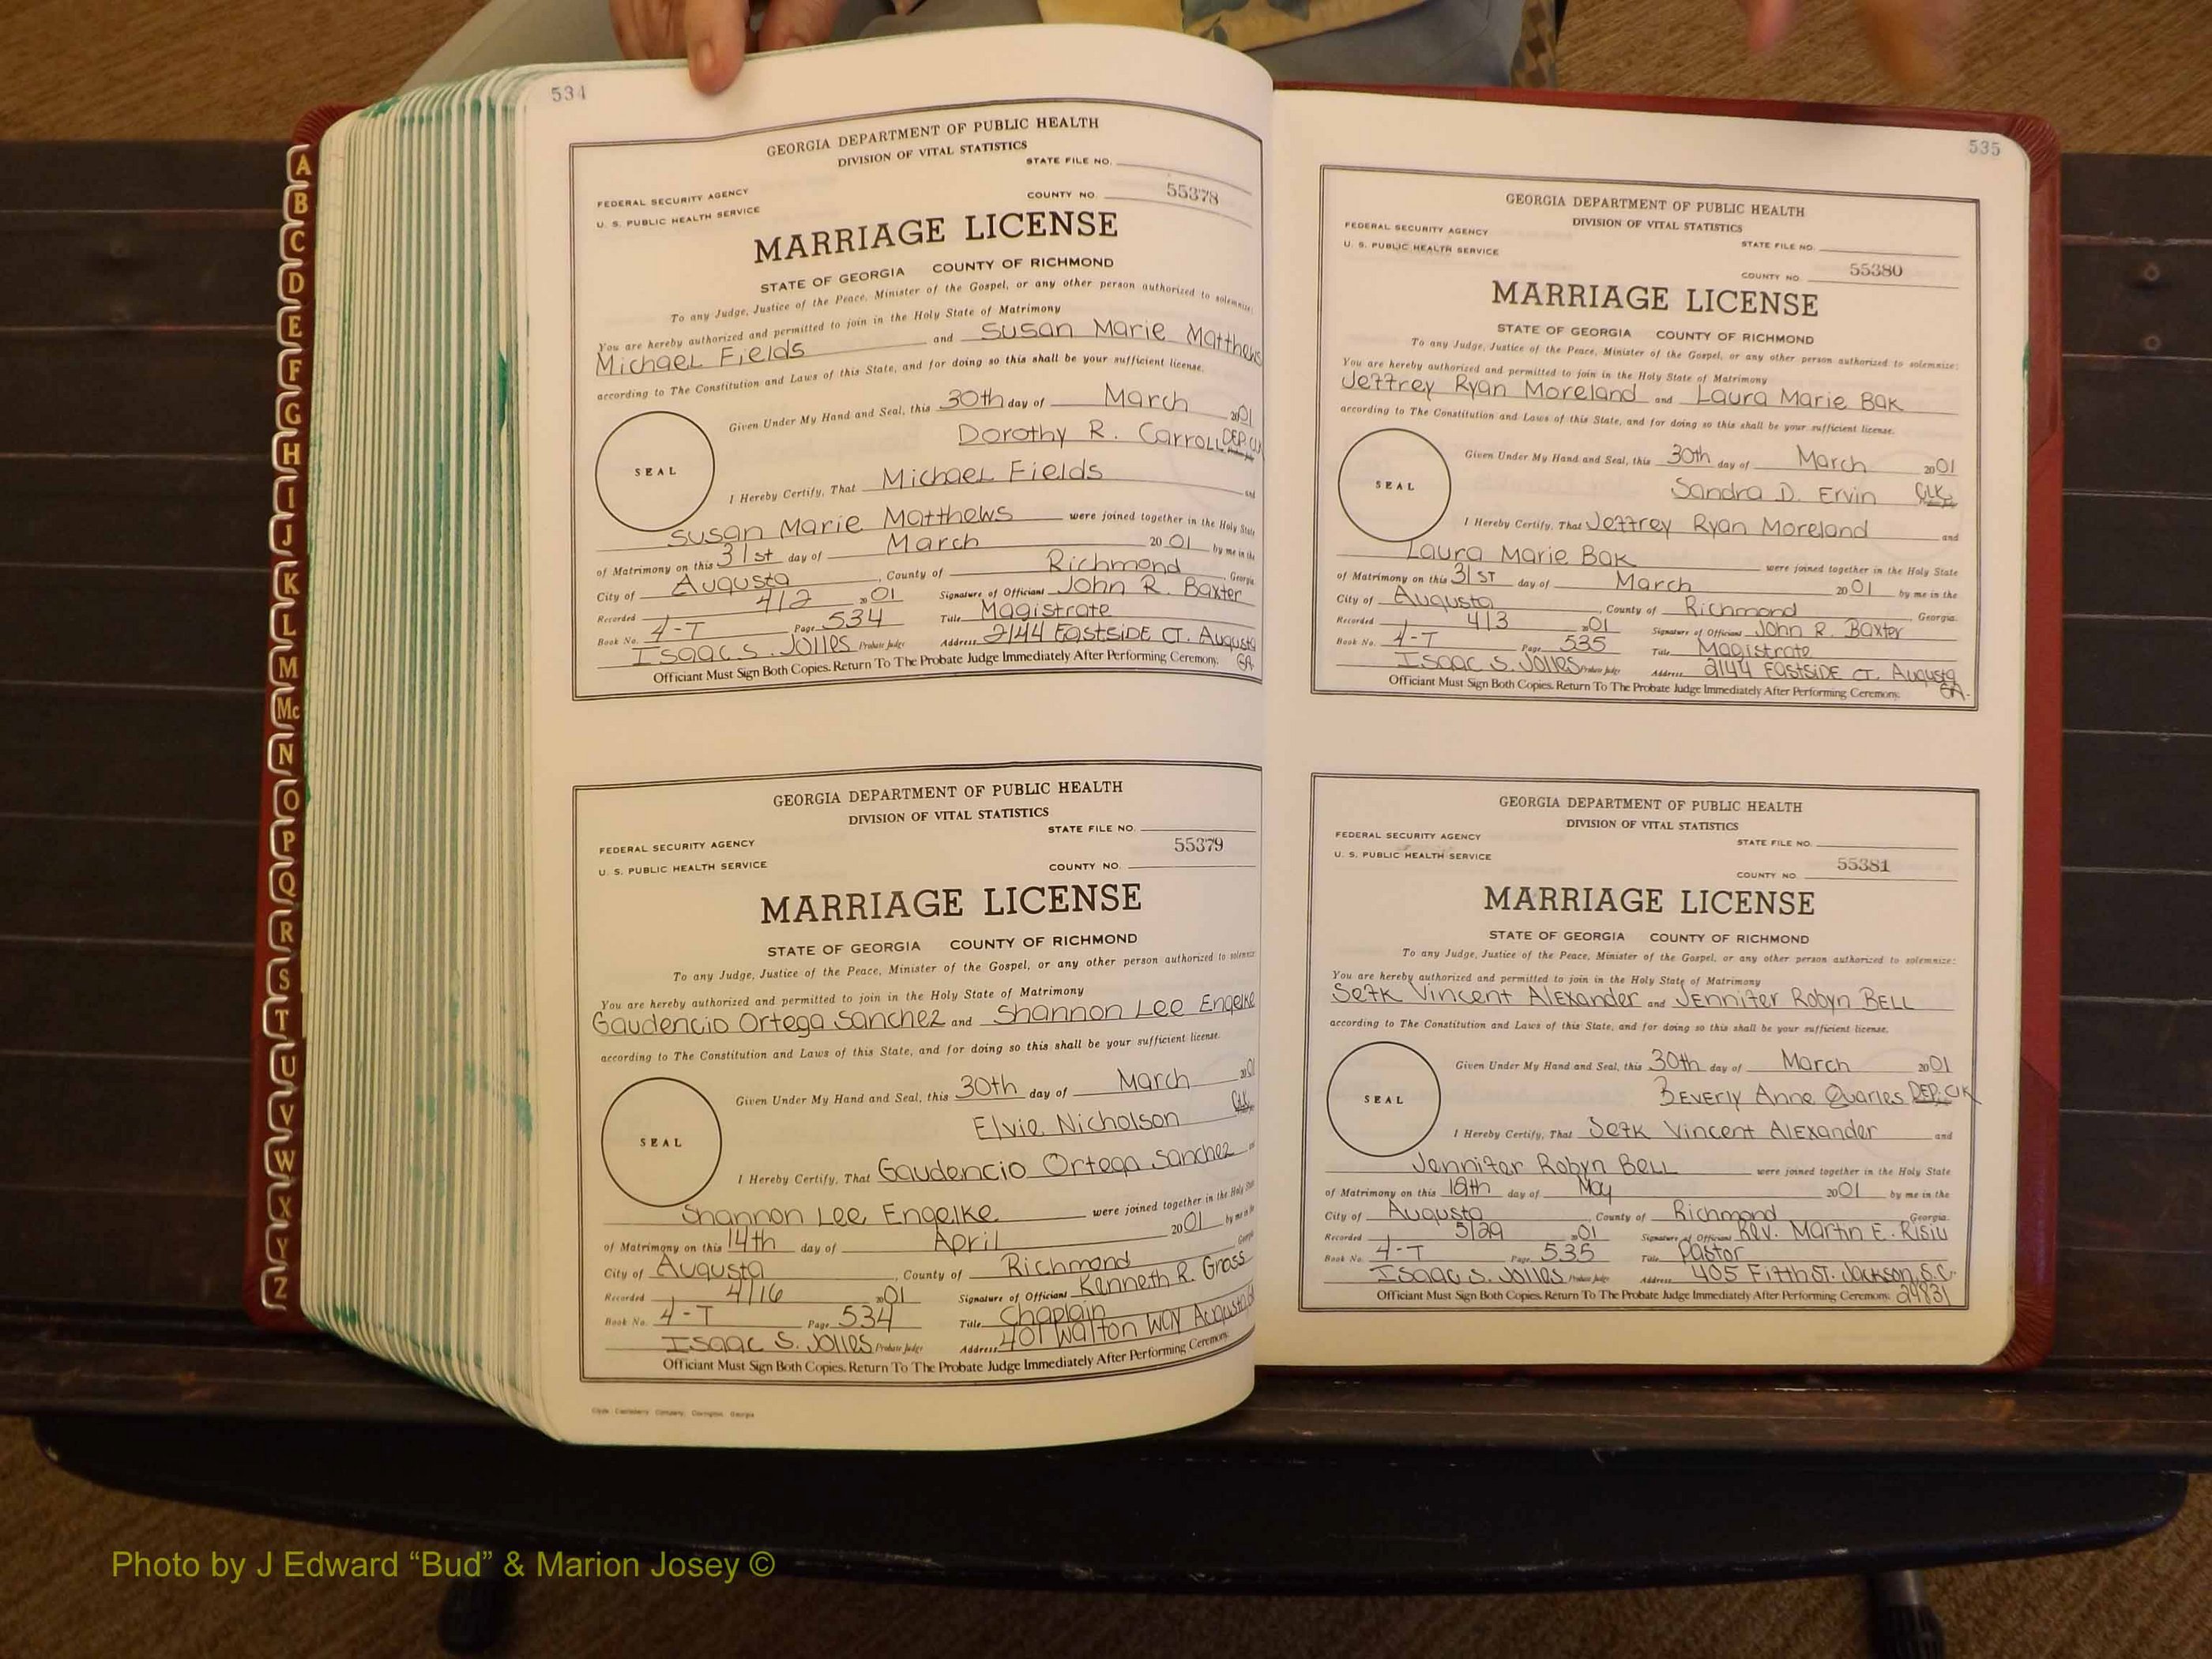 A
B
C
D
E
F
G
H
I
J
K
L
M
Mc
N
O
P
Q
R
S
T
U
V
W
X
Y
Z
534
GEORGIA DEPARTMENT OF PUBLIC HEALTH
DIVISION OF VITAL STATISTICS
STATE FILE NO.
FEDERAL SECURITY AGENCY
U. S. PUBLIC HEALTH SERVICE
COUNTY NO. 55378
MARRIAGE LICENSE
STATE OF GEORGIA COUNTY OF RICHMOND
To any Judge, Justice of the Peace, Minister of the Gospel, or any other person authorized to solemnize:
You are hereby authorized and permitted to join in the Holy State of Matrimony
Michael Fields and Susan Marie Matthews
according to The Constitution and Laws of this State, and for doing so this shall be your sufficient license.
Given Under My Hand and Seal, this 30th day of March 2001
Dorothy R. Carroll DEP.
SEAL
I Hereby Certify, That Michael Fields and
Susan Marie Matthews were joined together in the Holy State
of Matrimony on this 31st day of March 2001 by me in the
City of Augusta, County of Richmond, Georgia.
Recorded 4/2 2001 Signature of Officiant John R. Baxter
Book No. 4-T Page 534 Title Magistrate
Isaac S. Jolles Probate Judge Address 2144 EastSIDE CT. Augusta GA.
Officiant Must Sign Both Copies. Return To The Probate Judge Immediately After Performing Ceremony.
GEORGIA DEPARTMENT OF PUBLIC HEALTH
DIVISION OF VITAL STATISTICS
STATE FILE NO.
FEDERAL SECURITY AGENCY
U. S. PUBLIC HEALTH SERVICE
55379
COUNTY NO.
MARRIAGE LICENSE
STATE OF GEORGIA COUNTY OF RICHMOND
To any Judge, Justice of the Peace, Minister of the Gospel, or any other person authorized to
You are hereby authorized and permitted to join in the Holy State of Matrimony
Gaudencio Ortega Sanchez and Shannon Lee Engelke
according to The Constitution and Laws of this State, and for doing so this shall be your sufficient license.
Given Under My Hand and Seal, this 30th day of March 2001
Elvie Nicholson Clk.
SEAL
I Hereby Certify, That Gaudencio Ortega Sanchez and
Shannon Lee Engelke were joined together in the Holy State
of Matrimony on this 14th day of April 2001 by me in the
City of Augusta, County of Richmond Georgia
Recorded 4/16 2001 Signature of Officiant Kenneth R. Gross
Book No. 4-T Page 534 Title Chaplain
Isaac S. Jolles Probate Judge Address 401 Walton Way Augusta
Officiant Must Sign Both Copies. Return To The Probate Judge Immediately After Performing Ceremony.
535
GEORGIA DEPARTMENT OF PUBLIC HEALTH
DIVISION OF VITAL STATISTICS
FEDERAL SECURITY AGENCY
STATE FILE NO.
U. S. PUBLIC HEALTH SERVICE
COUNTY NO. 55380
MARRIAGE LICENSE
STATE OF GEORGIA COUNTY OF RICHMOND
To any Judge, Justice of the Peace, Minister of the Gospel, or any other person authorized to solemnize:
You are hereby authorized and permitted to join in the Holy State of Matrimony
Jeffrey Ryan Moreland and Laura Marie Bak
according to The Constitution and Laws of this State, and for doing so this shall be your sufficient license.
Given Under My Hand and Seal, this 30th day of March 2001
Sandra D. Ervin CLK.
SEAL
I Hereby Certify, That Jeffrey Ryan Moreland and
Laura Marie Bak were joined together in the Holy State
of Matrimony on this 31ST day of March 2001 by me in the
City of Augusta, County of Richmond Georgia.
Recorded 4/3 2001 Signature of Officiant John R. Baxter
Book No. 4-T Page 535 Title Magistrate
Isaac S. Jolles Probate Judge Address 2144 EastSIDE CT. Augusta GA.
Officiant Must Sign Both Copies. Return To The Probate Judge Immediately After Performing Ceremony.
GEORGIA DEPARTMENT OF PUBLIC HEALTH
DIVISION OF VITAL STATISTICS
FEDERAL SECURITY AGENCY
STATE FILE NO.
U. S. PUBLIC HEALTH SERVICE
COUNTY NO. 55381
MARRIAGE LICENSE
STATE OF GEORGIA COUNTY OF RICHMOND
To any Judge, Justice of the Peace, Minister of the Gospel, or any other person authorized to solemnize:
You are hereby authorized and permitted to join in the Holy State of Matrimony
Vincent Alexander and Jennifer Robyn BELL
according to The Constitution and Laws of this State, and for doing so this shall be your sufficient license.
Given Under My Hand and Seal, this 30th day of March 2001
Beverly Anne Quarles DEP. CLK
SEAL
I Hereby Certify, That Vincent Alexander and
Jennifer Robyn Bell were joined together in the Holy State
of Matrimony on this day of May 2001 by me in the
City of Augusta, County of Richmond Georgia
Recorded 5/29 2001 Signature of Officiant Rev. Martin E. Risiu
Book No. 4-T Page 535 Title Pastor
Isaac S. Jolles Probate Judge Address 405 Fifth ST. Jackson, S.C. 29831
Officiant Must Sign Both Copies. Return To The Probate Judge Immediately After Performing Ceremony.
Photo by J Edward “Bud” & Marion Josey ©